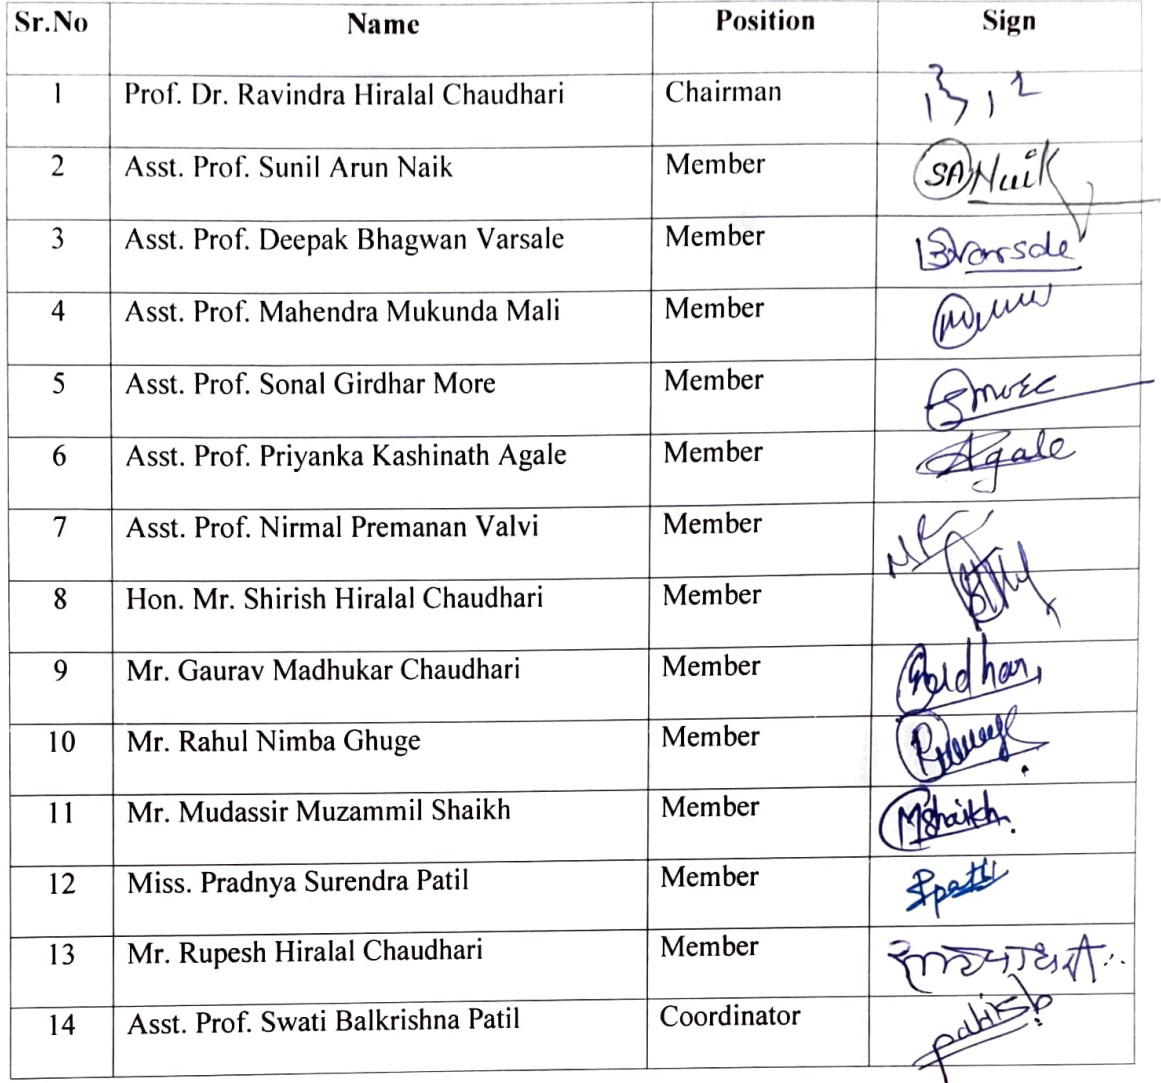 Sr.No Name Position Sign
1 Prof. Dr. Ravindra Hiralal Chaudhari Chairman
2 Asst. Prof. Sunil Arun Naik Member SANaik
3 Asst. Prof. Deepak Bhagwan Varsale Member Varsale
4 Asst. Prof. Mahendra Mukunda Mali Member
5 Asst. Prof. Sonal Girdhar More Member Smore
6 Asst. Prof. Priyanka Kashinath Agale Member Agale
7 Asst. Prof. Nirmal Premanan Valvi Member
8 Hon. Mr. Shirish Hiralal Chaudhari Member
9 Mr. Gaurav Madhukar Chaudhari Member
10 Mr. Rahul Nimba Ghuge Member
11 Mr. Mudassir Muzammil Shaikh Member MShaikh
12 Miss. Pradnya Surendra Patil Member
13 Mr. Rupesh Hiralal Chaudhari Member
14 Asst. Prof. Swati Balkrishna Patil Coordinator